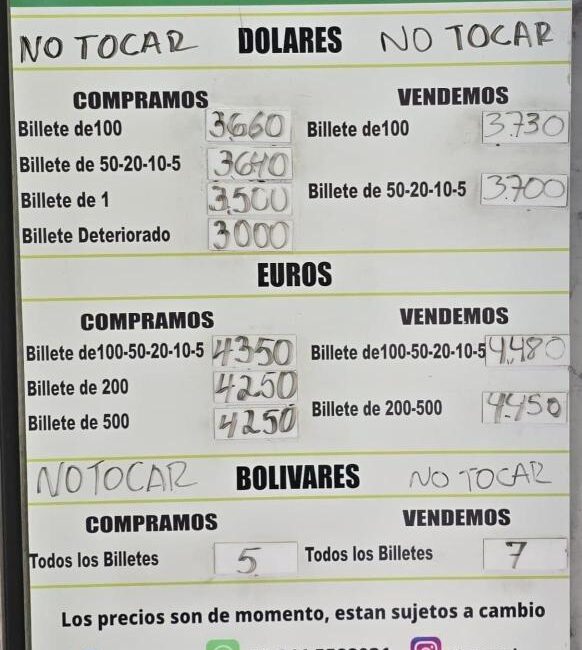 NO TOCAR DOLARES NO TOCAR
COMPRAMOS VENDEMOS
Billete de100 3.660 Billete de100 3.730
Billete de 50-20-10-5 3640
Billete de 1 3.500 Billete de 50-20-10-5 3.700
Billete Deteriorado 3000
EUROS
COMPRAMOS VENDEMOS
Billete de100-50-20-10-5 4350 Billete de100-50-20-10-5 4,480
Billete de 200 4250
Billete de 500 4250 Billete de 200-500 4.450
NO TOCAR BOLIVARES NO TOCAR
COMPRAMOS VENDEMOS
Todos los Billetes 5 Todos los Billetes 7
Los precios son de momento, estan sujetos a cambio